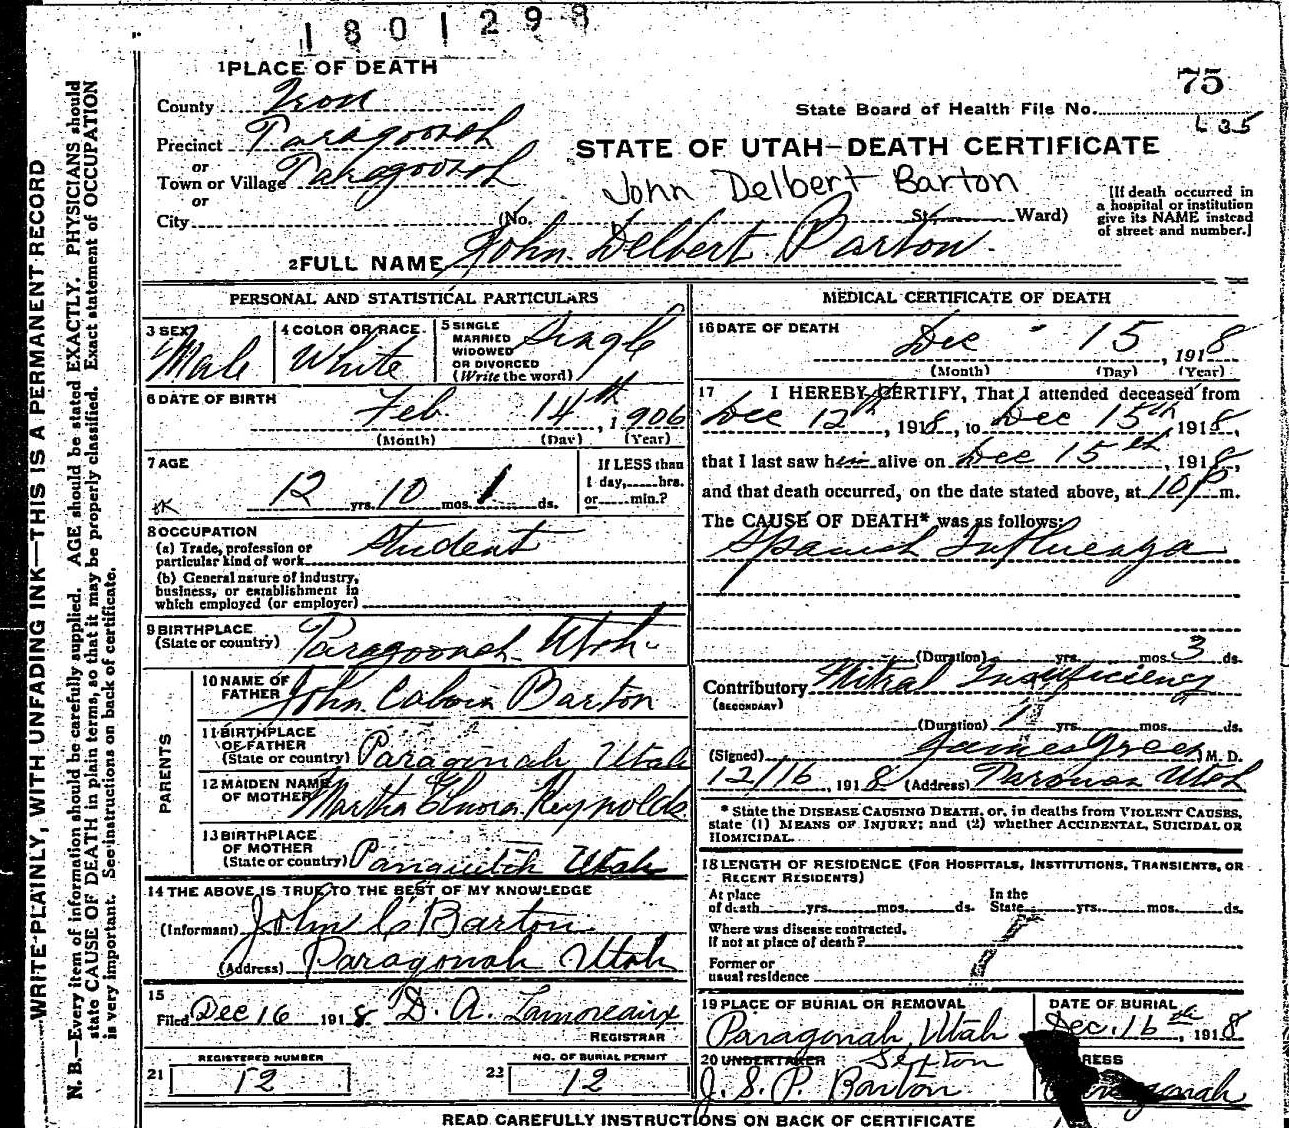 1801298
1 PLACE OF DEATH
75
County Iron
State Board of Health File No.
635
Precinct Paragoonah
STATE OF UTAH—DEATH CERTIFICATE
or
Town or Village Paragoonah
John Delbert Barton
or
City (No. St. Ward)
[If death occurred in
a hospital or institution
give its NAME instead
of street and number.]
2 FULL NAME John Delbert Barton.
PERSONAL AND STATISTICAL PARTICULARS
3 SEX Male
4 COLOR OR RACE. White
5 SINGLE
MARRIED
WIDOWED
OR DIVORCED
(Write the word)
Single
6 DATE OF BIRTH
Feb 14th, 1906
(Month) (Day) (Year)
7 AGE
12 yrs. 10 mos. 1 ds.
If LESS than
1 day, hrs.
or min.?
8 OCCUPATION
(a) Trade, profession or
particular kind of work Student
(b) General nature of industry,
business, or establishment in
which employed (or employer)
9 BIRTHPLACE
(State or country) Paragoonah Utah.
PARENTS
10 NAME OF
FATHER John Barton
11 BIRTHPLACE
OF FATHER
(State or country) Paragonah Utah
12 MAIDEN NAME
OF MOTHER Martha Elnora Reynolds
13 BIRTHPLACE
OF MOTHER
(State or country) Panguitch Utah
14 THE ABOVE IS TRUE TO THE BEST OF MY KNOWLEDGE
(Informant) John C Barton
(Address) Paragonah Utah
15
Filed Dec 16 1918 D. A. Lamoreaux
REGISTRAR
REGISTERED NUMBER
21 12
NO. OF BURIAL PERMIT
22 12
MEDICAL CERTIFICATE OF DEATH
16 DATE OF DEATH
Dec 15, 1918
(Month) (Day) (Year)
17 I HEREBY CERTIFY, That I attended deceased from
Dec 12th, 1918, to Dec 15th 1918,
that I last saw him alive on Dec 15th, 1918,
and that death occurred, on the date stated above, at 10 P m.
The CAUSE OF DEATH* was as follows:
Spanish Influenza
(Duration) yrs. mos. 3 ds.
Contributory Mitral Insufficiency
(SECONDARY)
(Duration) 1 yrs. mos. ds.
(Signed) James Green M. D.
12/16, 1918 (Address) Parowan Utah
* State the DISEASE CAUSING DEATH, or, in deaths from VIOLENT CAUSES,
state (1) MEANS OF INJURY; and (2) whether ACCIDENTAL, SUICIDAL OR
HOMICIDAL.
18 LENGTH OF RESIDENCE (FOR HOSPITALS, INSTITUTIONS, TRANSIENTS, OR
RECENT RESIDENTS)
At place
of death yrs. mos. ds.
In the
State yrs. mos. ds.
Where was disease contracted.
If not at place of death?
Former or
usual residence
19 PLACE OF BURIAL OR REMOVAL
Paragonah, Utah
DATE OF BURIAL
Dec. 16th, 1918
20 UNDERTAKER Sexton
J. S. P. Barton
READ CAREFULLY INSTRUCTIONS ON BACK OF CERTIFICATE
WRITE PLAINLY, WITH UNFADING INK—THIS IS A PERMANENT RECORD
N. B.—Every item of information should be carefully supplied. AGE should be stated EXACTLY. PHYSICIANS should
state CAUSE OF DEATH in plain terms, so that it may be properly classified. Exact statement of OCCUPATION
is very important. See instructions on back of certificate.